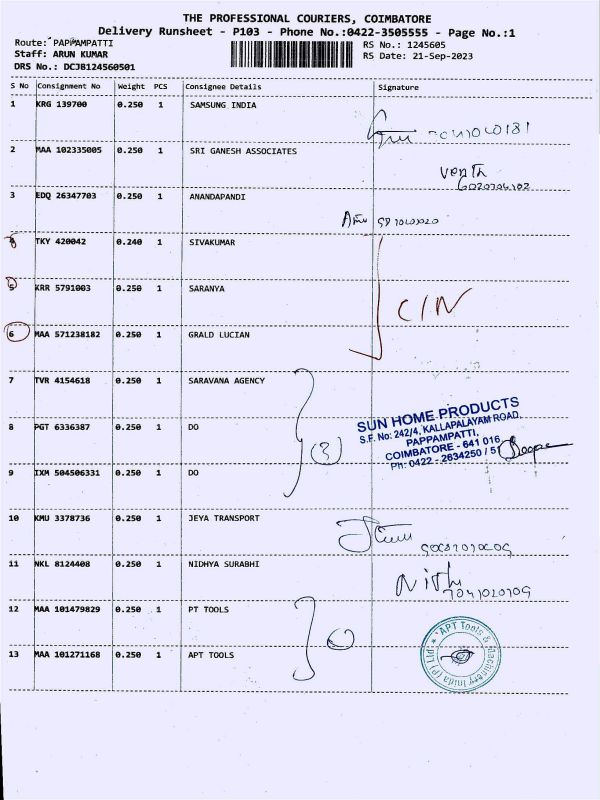 THE PROFESSIONAL COURIERS, COIMBATORE
Delivery Runsheet - P103 - Phone No.:0422-3505555 - Page No.:1
Route: PAPPAMPATTI
Staff: ARUN KUMAR
DRS No.: DCJB124560501
RS No.: 1245605
RS Date: 21-Sep-2023
S No Consignment No Weight PCS Consignee Details Signature
1 KRG 139700 0.250 1 SAMSUNG INDIA
2 MAA 102335005 0.250 1 SRI GANESH ASSOCIATES
3 EDQ 26347703 0.250 1 ANANDAPANDI
4 TKY 420042 0.240 1 SIVAKUMAR
5 KRR 5791003 0.250 1 SARANYA
C/N
6 MAA 571238182 0.250 1 GRALD LUCIAN
7 TVR 4154618 0.250 1 SARAVANA AGENCY
8 PGT 6336387 0.250 1 DO
(3)
SUN HOME PRODUCTS
S.F. No: 242/4, KALLAPALAYAM ROAD,
PAPPAMPATTI,
COIMBATORE - 641 016
Ph: 0422 - 2634250 / 51
9 IXM 504506331 0.250 1 DO
10 KMU 3378736 0.250 1 JEYA TRANSPORT
11 NKL 8124408 0.250 1 NIDHYA SURABHI
12 MAA 101479829 0.250 1 PT TOOLS
13 MAA 101271168 0.250 1 APT TOOLS
* APT Tools & Machinery India (P) Ltd